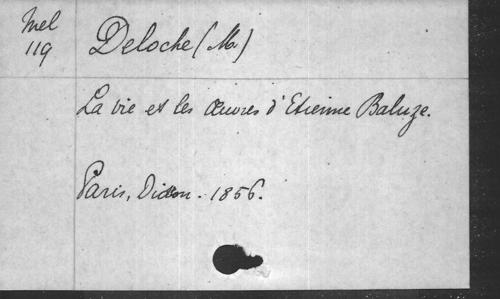 Mel
119
Deloche (M.)
La vie et les œuvres d'Etienne Baluze.
Paris, Didron. 1856.